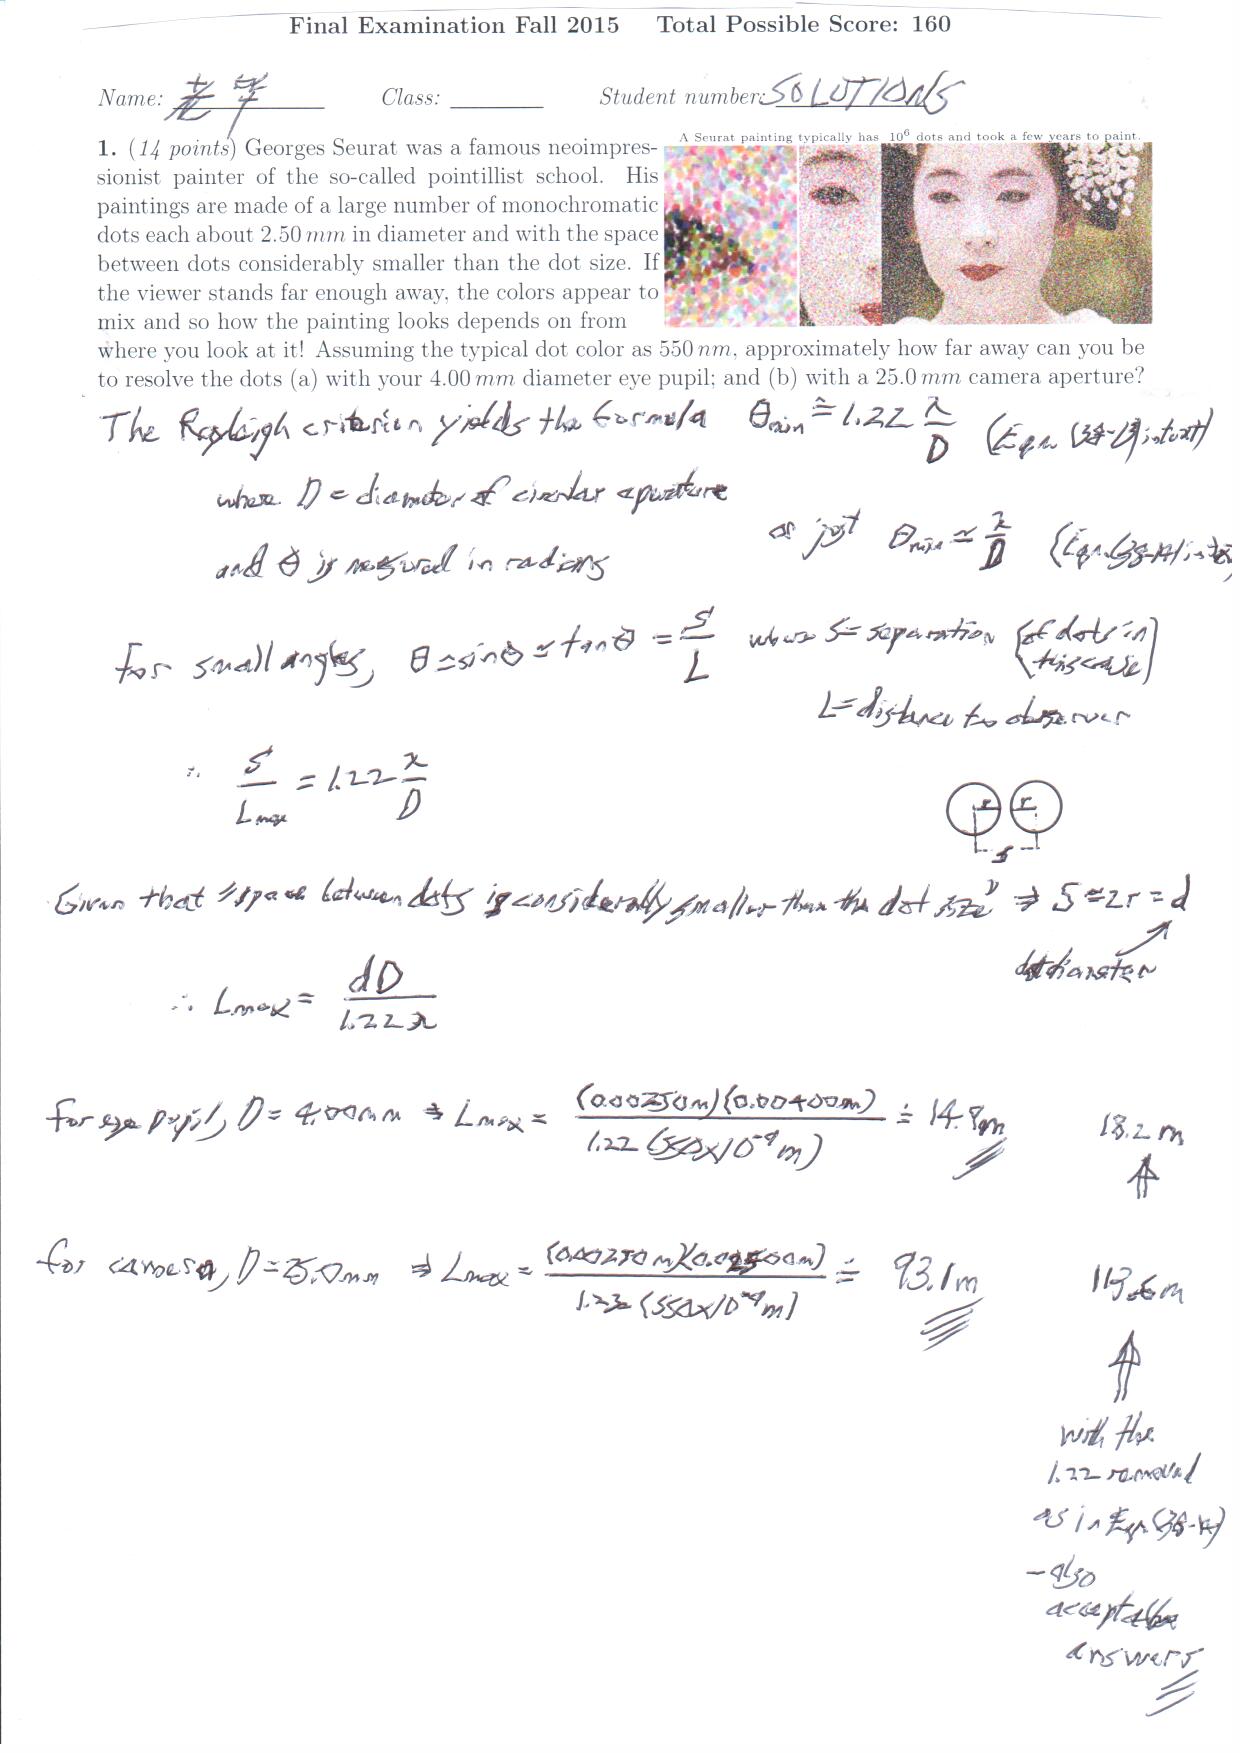 Final Examination Fall 2015 Total Possible Score: 160
Name: Class: Student number: SOLUTIONS
A Seurat painting typically has 10⁶ dots and took a few years to paint.
1. (14 points) Georges Seurat was a famous neoimpres-
sionist painter of the so-called pointillist school. His
paintings are made of a large number of monochromatic
dots each about 2.50 mm in diameter and with the space
between dots considerably smaller than the dot size. If
the viewer stands far enough away, the colors appear to
mix and so how the painting looks depends on from
where you look at it! Assuming the typical dot color as 550 nm, approximately how far away can you be
to resolve the dots (a) with your 4.00 mm diameter eye pupil; and (b) with a 25.0 mm camera aperture?
The Rayleigh criterion yields the formula θmin ≅ 1.22 λ/D
where D = diameter of circular aperture
or just θmin ≃ λ/D
and θ is measured in radians
for small angles, θ ≃ sinθ ≃ tanθ = S/L where S = separation (of dots in this case)
L = distance to observer
∴ S/Lmax = 1.22 λ/D
r r
s
Given that "space between dots is considerably smaller than the dot size" ⇒ S ≃ 2r = d
dot diameter
∴ Lmax = dD/1.22λ
for eye pupil, D = 4.00mm ⇒ Lmax = (0.00250m)(0.00400m)/1.22(550x10⁻⁹m) ≐ 14.9m 18.2 m
for camera, D = 25.0mm ⇒ Lmax = (0.00250m)(0.02500m)/1.22(550x10⁻⁹m) ≐ 93.1m 113.6m
with the
1.22 removed
as in Eqn.
- also
acceptable
answers